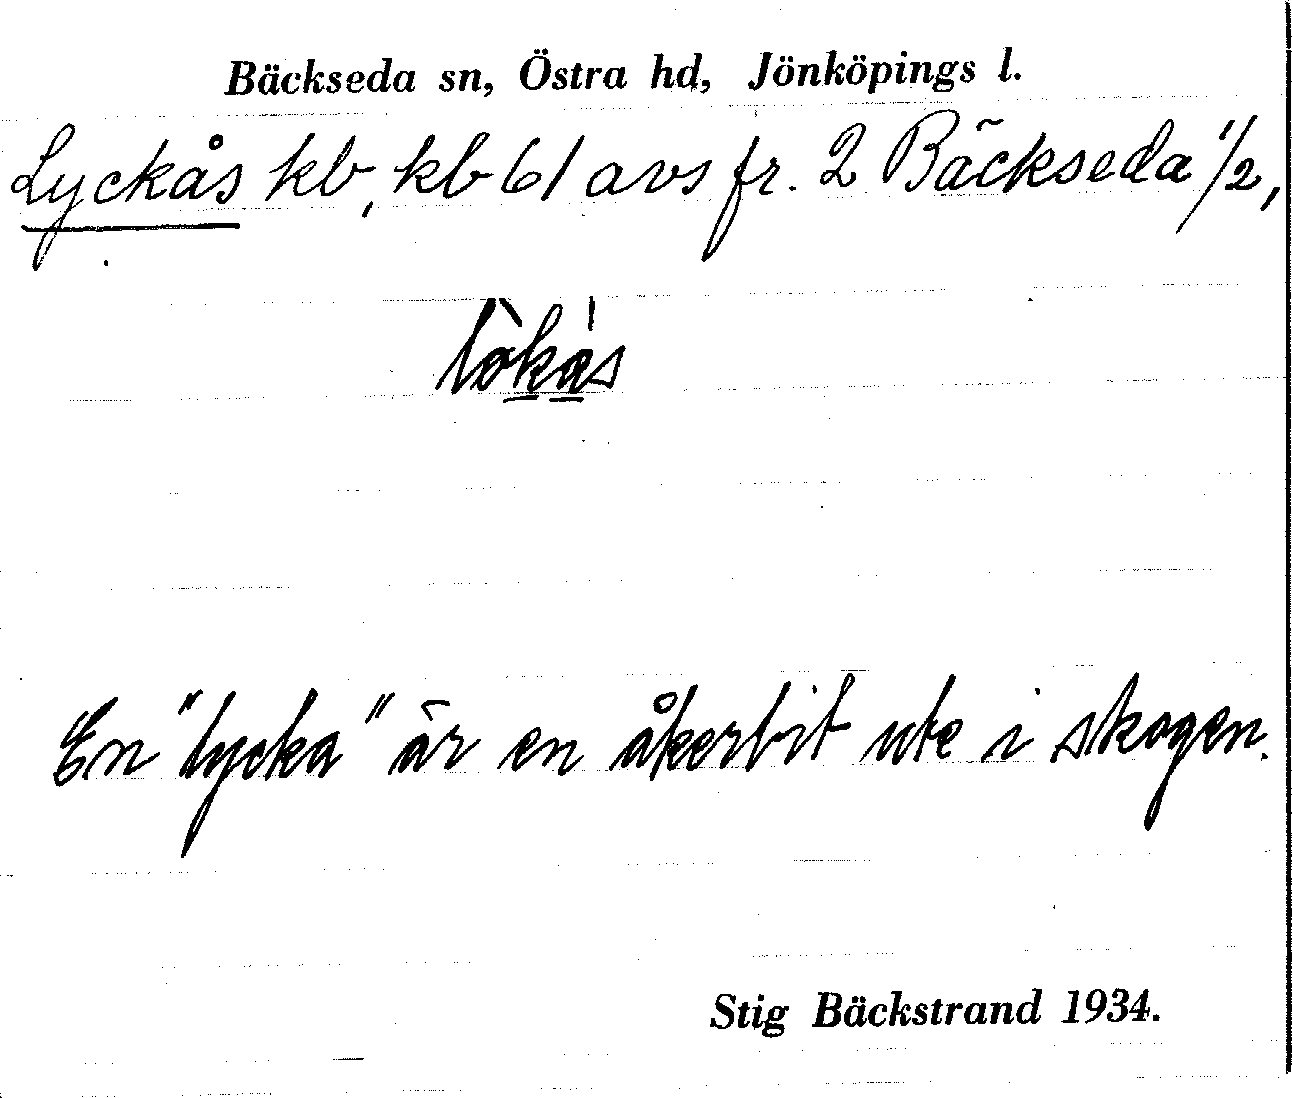 Bäckseda sn, Östra hd, Jönköpings l.
Lyckås kb, kb 61 avs fr. 2 Bäckseda 1/2,
En "lycka" är en åkerbit ute i skogen.
Stig Bäckstrand 1934.